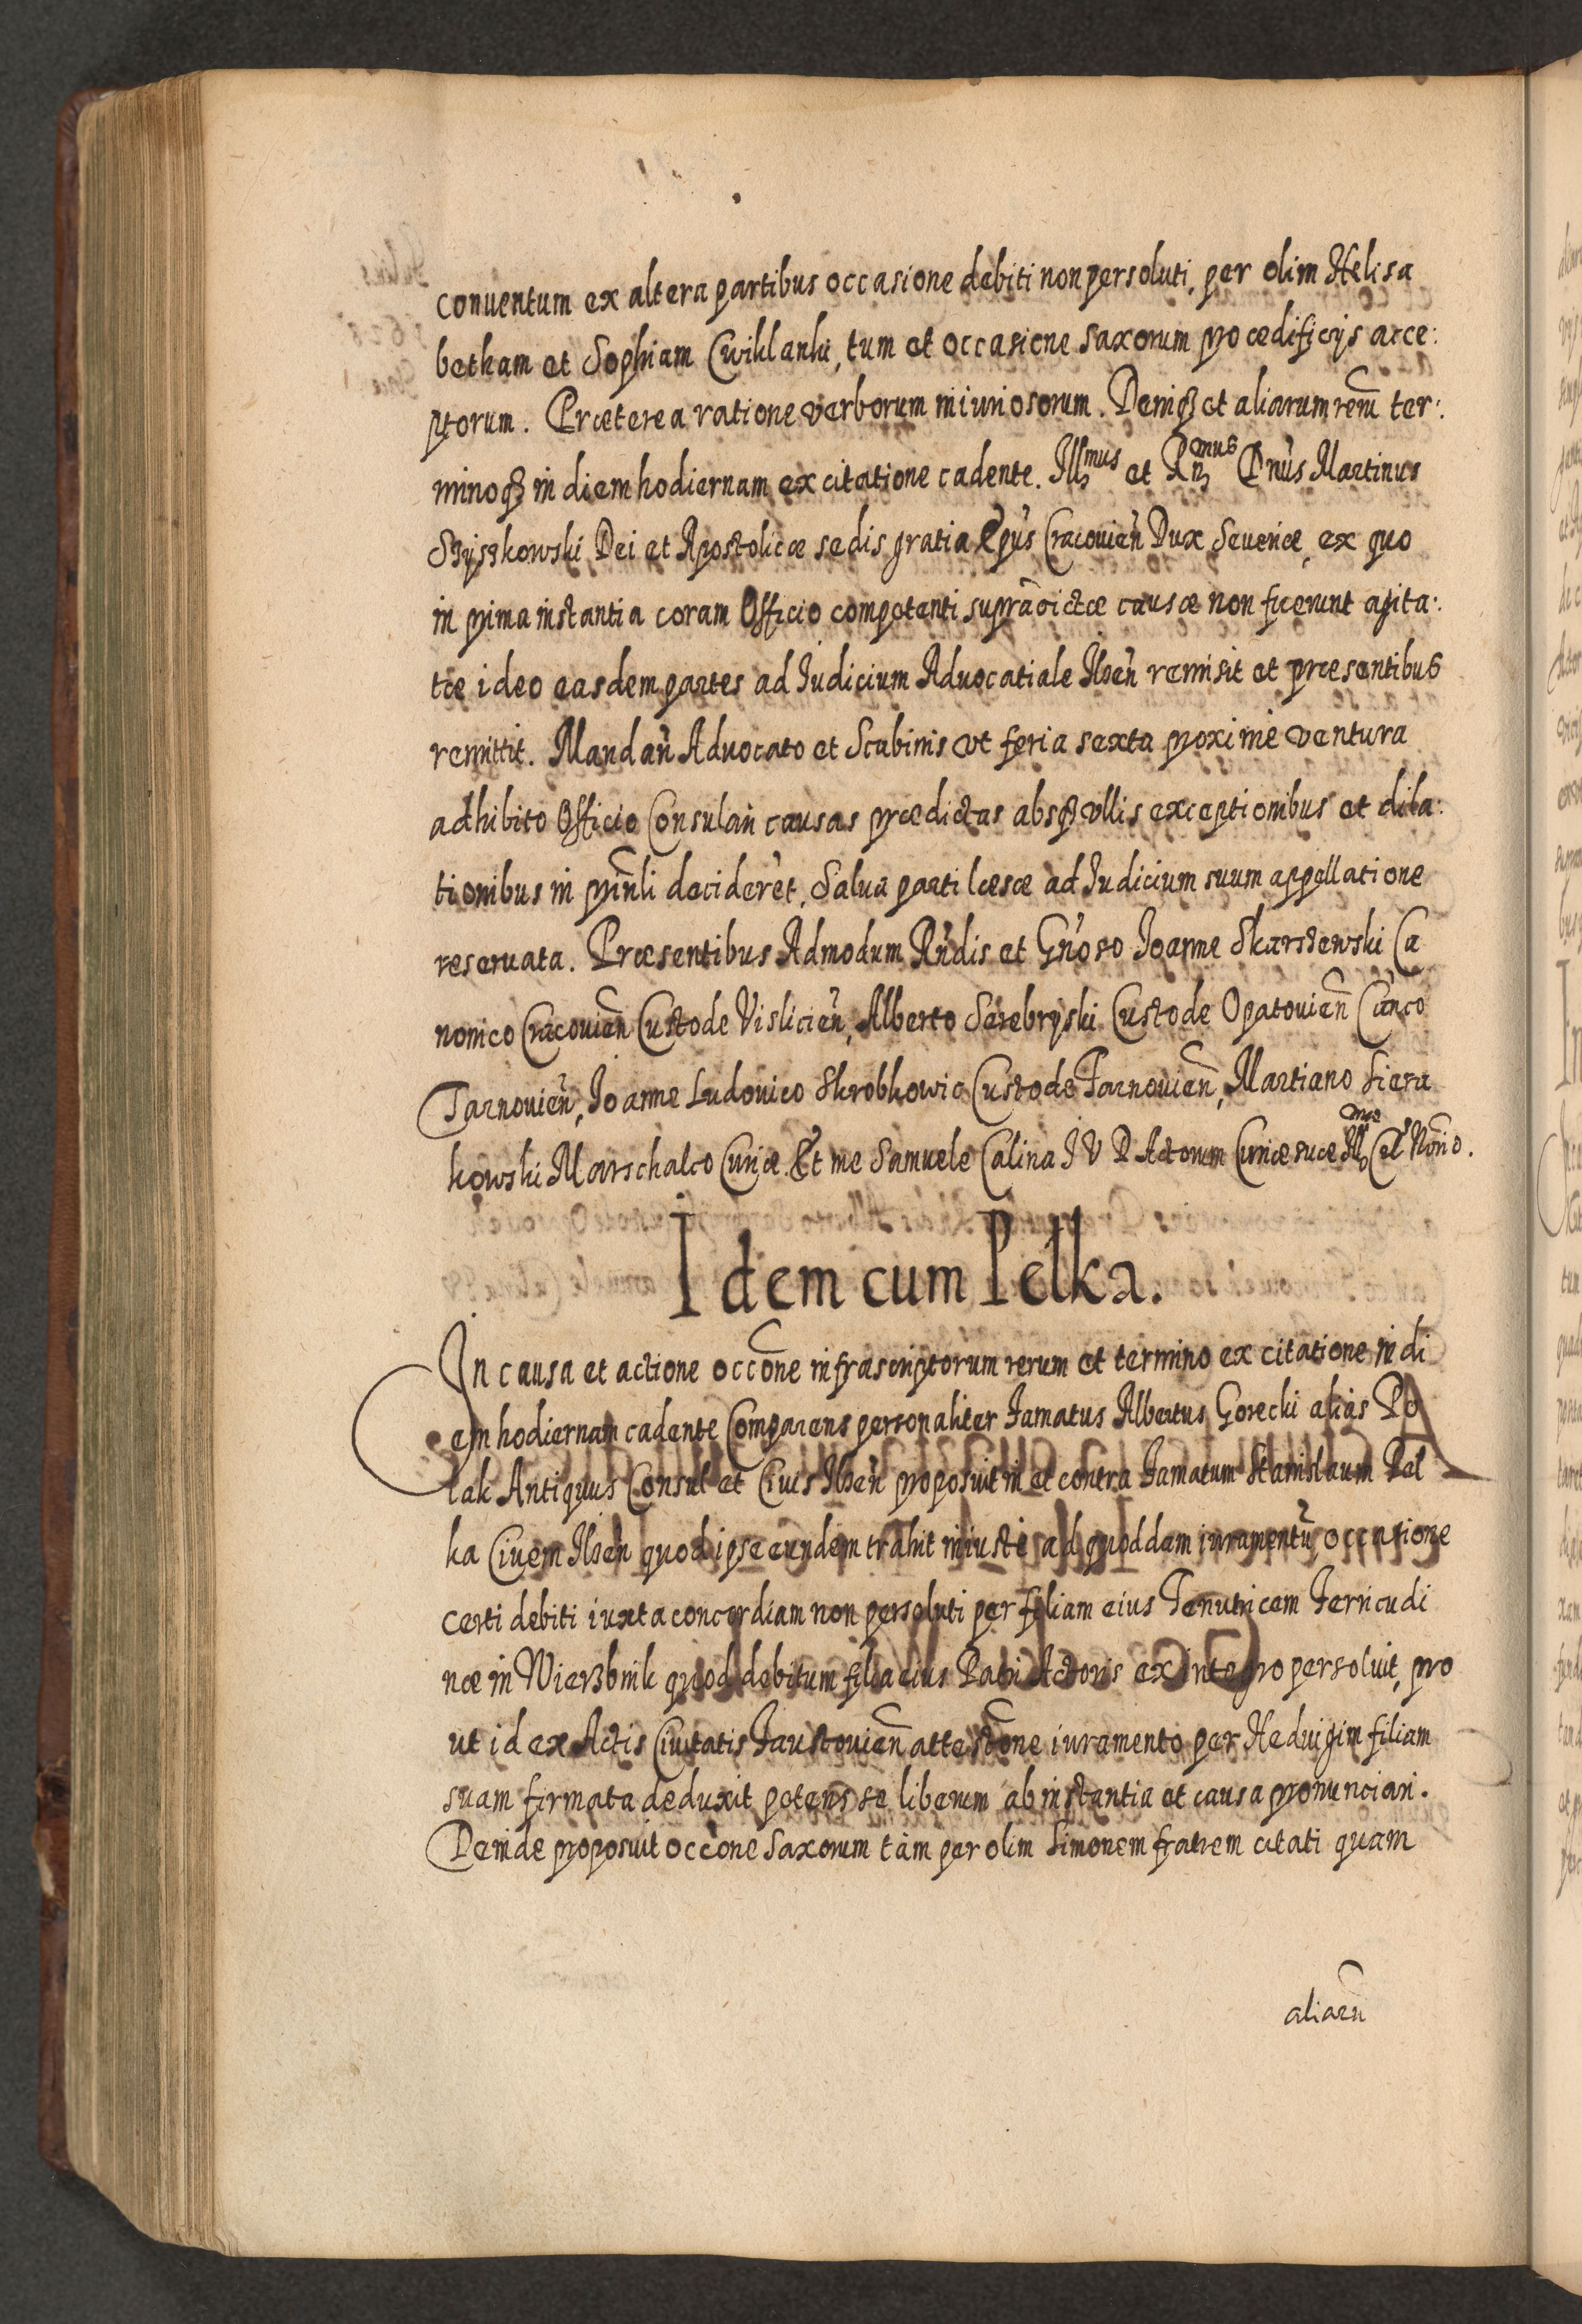 conuentum ex altera partibus occasione debiti non persoluti, per olim Helisa
betham et Sophiam Cwiklanki, tum et occasione saxorum pro ædificijs acce:
ptorum. Præterea ratione verborum iniuriosorum. Deniq3 et aliarum rerũ ter:
minoq3 in diem hodiernam ex citatione cadente. Ill3mus et Rn3mus Dnus Martinus
Szyszkowski Dei et Apostolicæ sedis gratia Epus Cracouien̄ Dux Seueriæ, ex quo
in prima instantia coram Officio competenti supradictæ causæ non fuerunt agita:
tæ ideo easdem partes ad Iudicium Aduocatiale Ilzen̄ remisit et præsentibus
remittit. Mandan̄ Aduocato et Scabinis vt feria sexta proxime ventura
adhibito Officio Consulari causas prædictas absq3 vllis exceptionibus et dila:
tionibus in prinli decideret. Salua parti læsæ ad Iudicium suum appellatione
reseruata. Præsentibus Admodum Rndis et Gnoso Ioanne Skarszewski Ca
nonico Cracouien̄ Custode Vislicien̄, Alberto Serebryski Custode Opatouien̄ Canco
Tarnouien̄, Ioanne Ludouico Skrobkowic Custode Tarnouien̄, Martiano Siera
kowski Marschalco Curiæ. Et me Samuele Calina I V D Actorum Curiæ suæ Ill3mæ Cel Norio.
Idem cum Pelka.
In causa et actione occõne infrascriptorum rerum et termino ex citatione in di
em hodiernam cadente Comparens personaliter Famatus Albertus Gorecki alias Po
lak Antiquus Consul et Ciuis Ilzen̄ proposuit in et contra Famatum Stanislaum Pel
ka Ciuem Ilzen̄ quod ipse eundem trahit iniuste ad quoddam iuramentũ occasione
certi debiti iuxta concordiam non persoluti per filiam eius Tenutricem Ferricudi
næ in Wierzbnik quod debitum filia eius Patri Actoris ex integro persoluit, pro
ut id ex Actis Ciuitatis Faustouien̄ attestõne iuramento per Heduigim filiam
suam firmata deduxit petens se liberum ab instantia et causa pronunciari.
Deinde proposuit occone saxorum tàm per olim Simonem fratrem citati quam
aliarũ